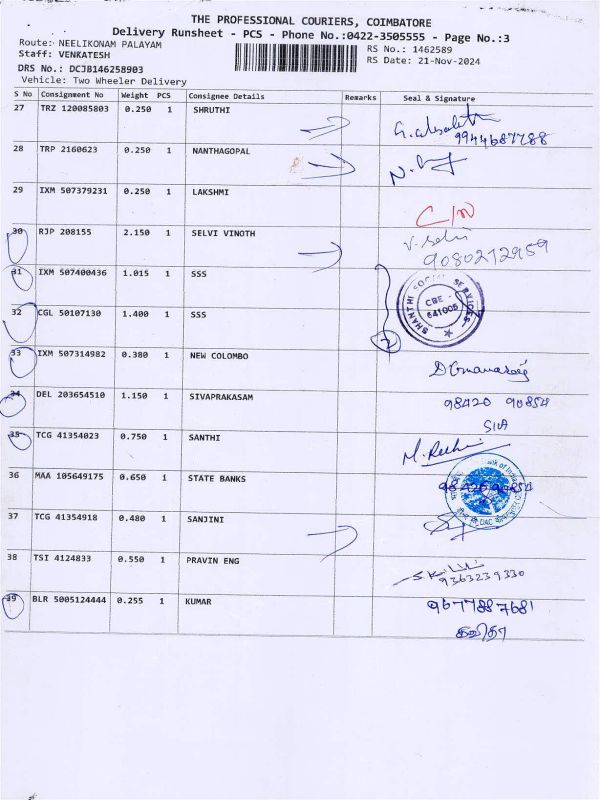 THE PROFESSIONAL COURIERS, COIMBATORE
Delivery Runsheet - PCS - Phone No.:0422-3505555 - Page No.:3
Route: NEELIKONAM PALAYAM RS No.: 1462589
Staff: VENKATESH RS Date: 21-Nov-2024
DRS No.: DCJ8146258903
Vehicle: Two Wheeler Delivery
S No Consignment No Weight PCS Consignee Details Remarks Seal & Signature
27 TRZ 120085803 0.250 1 SHRUTHI
9944687788
28 TRP 2160623 0.250 1 NANTHAGOPAL
29 IXM 507379231 0.250 1 LAKSHMI
C/N
30 RJP 208155 2.150 1 SELVI VINOTH V. Selvi
9080212959
31 IXM 507400436 1.015 1 SSS
SHANTHI SOCIAL SERVICES
CBE
641005
32 CGL 50107130 1.400 1 SSS
2
33 IXM 507314982 0.380 1 NEW COLOMBO
34 DEL 203654510 1.150 1 SIVAPRAKASAM 98420 90854
SIVA
35 TCG 41354023 0.750 1 SANTHI
36 MAA 105649175 0.650 1 STATE BANKS
Bank of India
37 TCG 41354918 0.480 1 SANJINI
38 TSI 4124833 0.550 1 PRAVIN ENG
9363239330
39 BLR 5005124444 0.255 1 KUMAR 9677887681
கவிதா